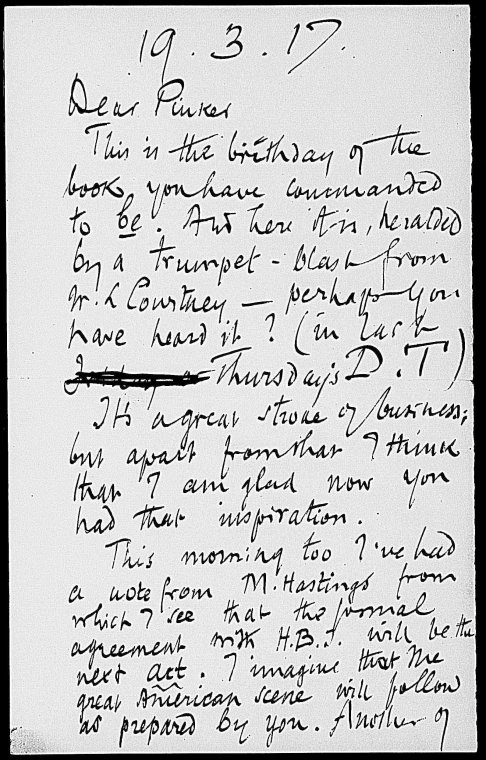 19.3.17.
Dear Pinker
This is the birthday of the
book you have commanded
to be. And here it is, heralded
by a trumpet-blast from
W.L Courtney — perhaps you
have heard it? (in last
Thursday's D.T)
It's a great stroke of business;
but apart from that I think
that I am glad now you
had that inspiration.
This morning too I've had
a note from M. Hastings from
which I see that the formal
agreement with H.B.I. will be the
next act. I imagine that the
great American scene will follow
as prepared by you. Another of